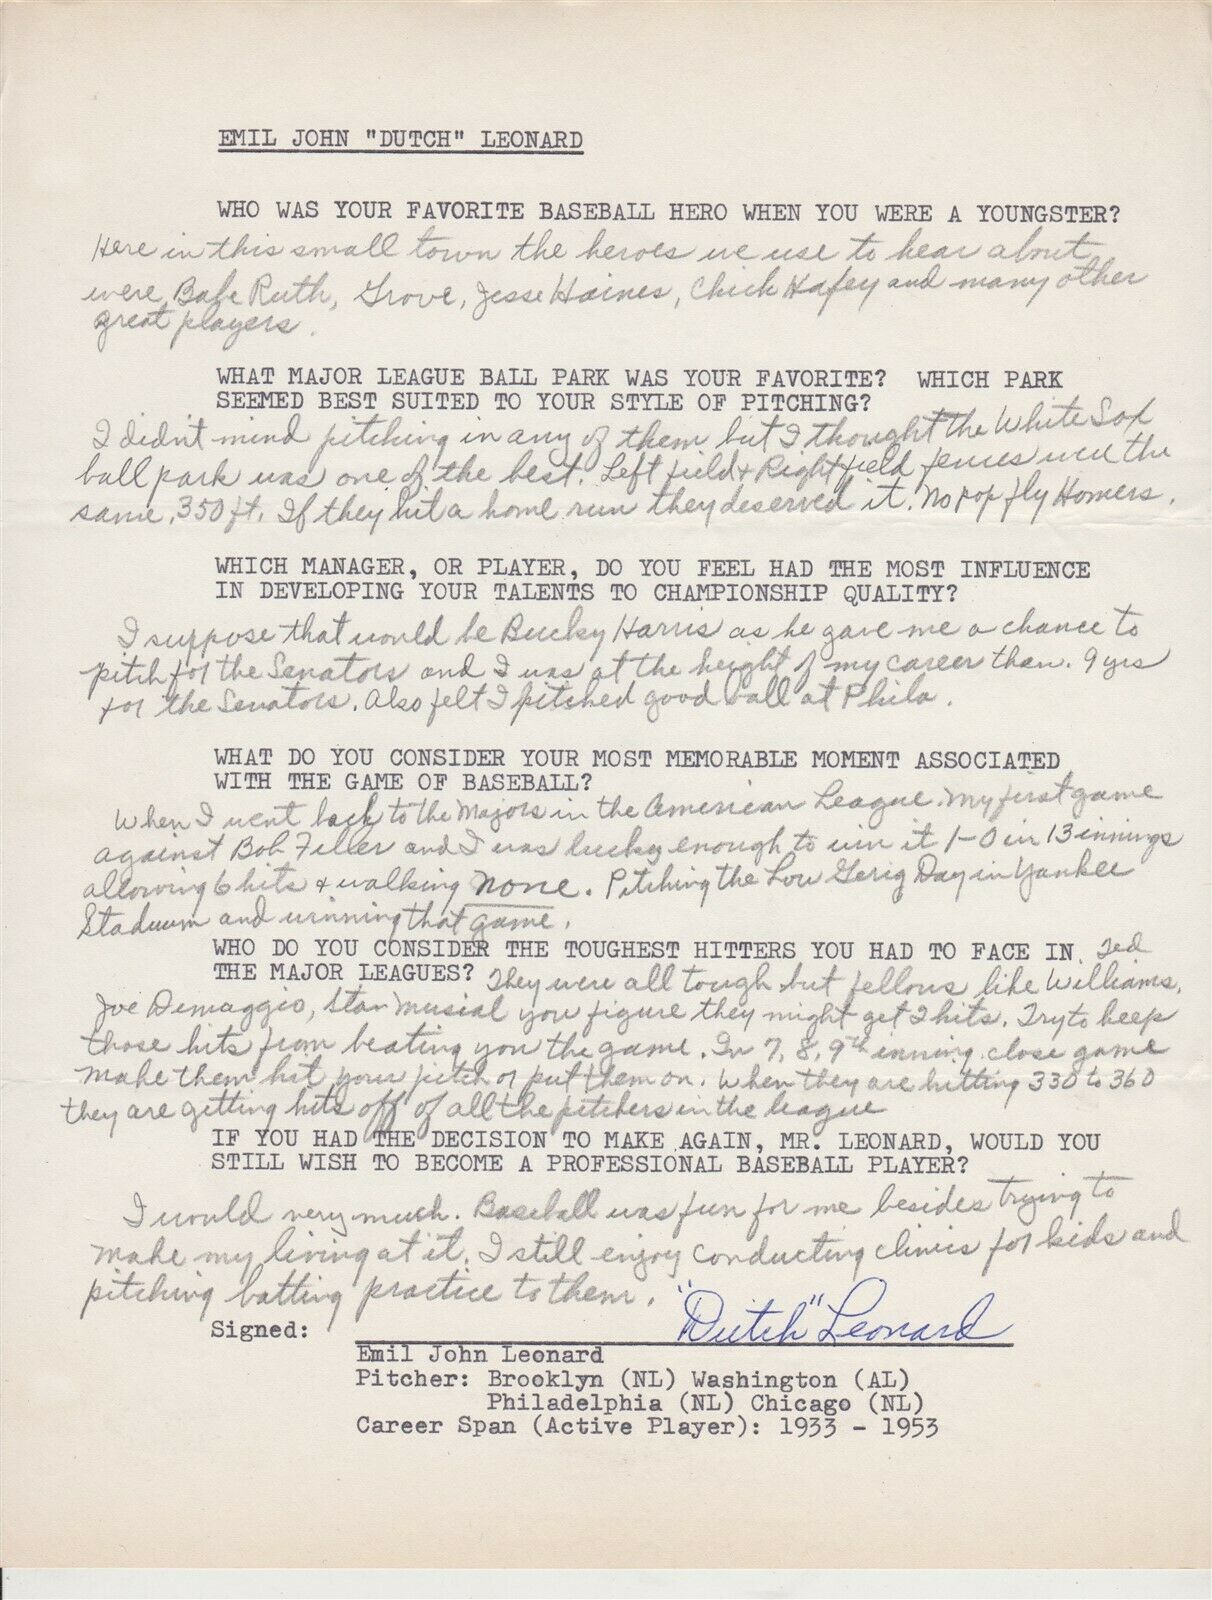 EMIL JOHN "DUTCH" LEONARD
WHO WAS YOUR FAVORITE BASEBALL HERO WHEN YOU WERE A YOUNGSTER?
Here in this small town the heroes we use to hear about
were, Babe Ruth, Grove, Jesse Haines, Chick Hafey and many other
great players.
WHAT MAJOR LEAGUE BALL PARK WAS YOUR FAVORITE? WHICH PARK
SEEMED BEST SUITED TO YOUR STYLE OF PITCHING?
I didn't mind pitching in any of them but I thought the White Sox
ball park was one of the best. Left field & Right field fences were the
same, 350 ft. If they hit a home run they deserved it. No pop fly Homers.
WHICH MANAGER, OR PLAYER, DO YOU FEEL HAD THE MOST INFLUENCE
IN DEVELOPING YOUR TALENTS TO CHAMPIONSHIP QUALITY?
I suppose that would be Bucky Harris as he gave me a chance to
pitch for the Senators and I was at the height of my career then. 9 yrs
for the Senators. Also felt I pitched good ball at Phila.
WHAT DO YOU CONSIDER YOUR MOST MEMORABLE MOMENT ASSOCIATED
WITH THE GAME OF BASEBALL?
When I went back to the Majors in the American League. My first game
against Bob Feller and I was lucky enough to win it 1-0 in 13 innings
allowing 6 hits & walking none. Pitching the Lou Gerig Day in Yankee
Staduum and winning that game.
WHO DO YOU CONSIDER THE TOUGHEST HITTERS YOU HAD TO FACE IN Ted
THE MAJOR LEAGUES? They were all tough but fellows like Williams,
Joe Demaggio, Stan Musial you figure they might get 2 hits. Try to keep
those hits from beating you the game. In 7, 8, 9th inning close game
make them hit your pitch or put them on. When they are hitting 330 to 360
they are getting hits off of all the pitchers in the league
IF YOU HAD THE DECISION TO MAKE AGAIN, MR. LEONARD, WOULD YOU
STILL WISH TO BECOME A PROFESSIONAL BASEBALL PLAYER?
I would very much. Baseball was fun for me besides trying to
make my living at it. I still enjoy conducting clinics for kids and
pitching batting practice to them.
Signed: "Dutch" Leonard
Emil John Leonard
Pitcher: Brooklyn (NL) Washington (AL)
Philadelphia (NL) Chicago (NL)
Career Span (Active Player): 1933 - 1953